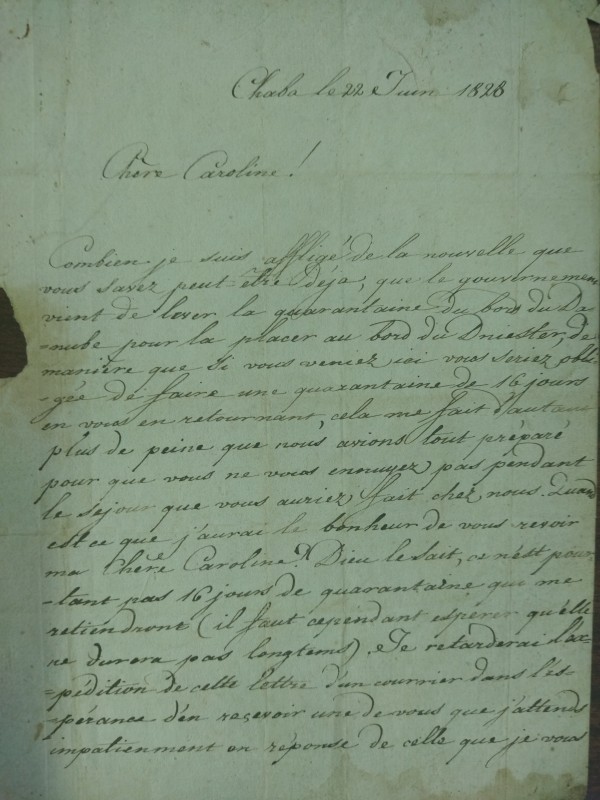 Chaba le 22 Juin 1828
Chère Caroline!
Combien je suis affligé de la nouvelle que
vous savez peut-être déja, que le gouvernement
vient de lever la quarantaine du bord du Da-
-nube pour la placer au bord du Dniester, de
manière que si vous veniez ici vous seriez obli-
-gée de faire une quarantaine de 16 jours
en vous en retournant, cela me fait d'autant
plus de peine que nous avions tout préparé
pour que vous ne vous ennuyez pas pendant
le sejour que vous auriez fait chez nous. Quand
est ce que j'aurai le bonheur de vous revoir
ma Chère Caroline? Dieu le sait, ce n'est pour-
-tant pas 16 jours de quarantaine qui me
retiendront (il faut cependant espérer qu'elle
ne durera pas longtems). Je retarderai l'ex-
=pédition de cette lettre d'un courrier dans l'és-
=pérance d'en reçevoir une de vous que j'attends
impatienment en réponse de celle que je vous